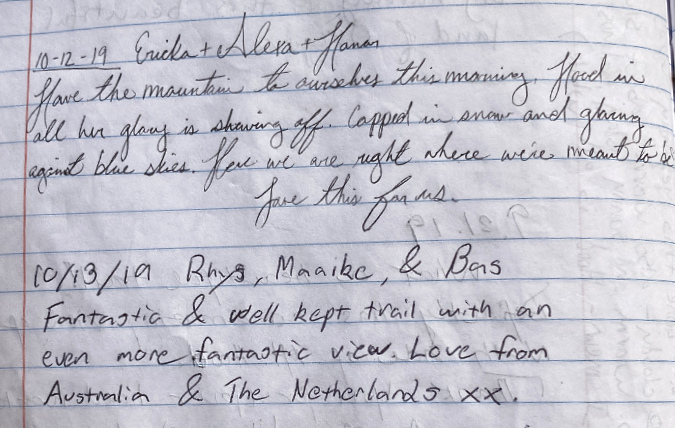 10-12-19 Ericka + Alexa + Hanan
Have the mountain to ourselves this morning. Hood in
all her glory is showing off. Capped in snow and glaring
against blue skies. Here we are right where we're meant to be
Love this for us.
10/13/19 Rhys, Maaike, & Bas
Fantastic & well kept trail with an
even more fantastic view. Love from
Australia & The Netherlands xx.